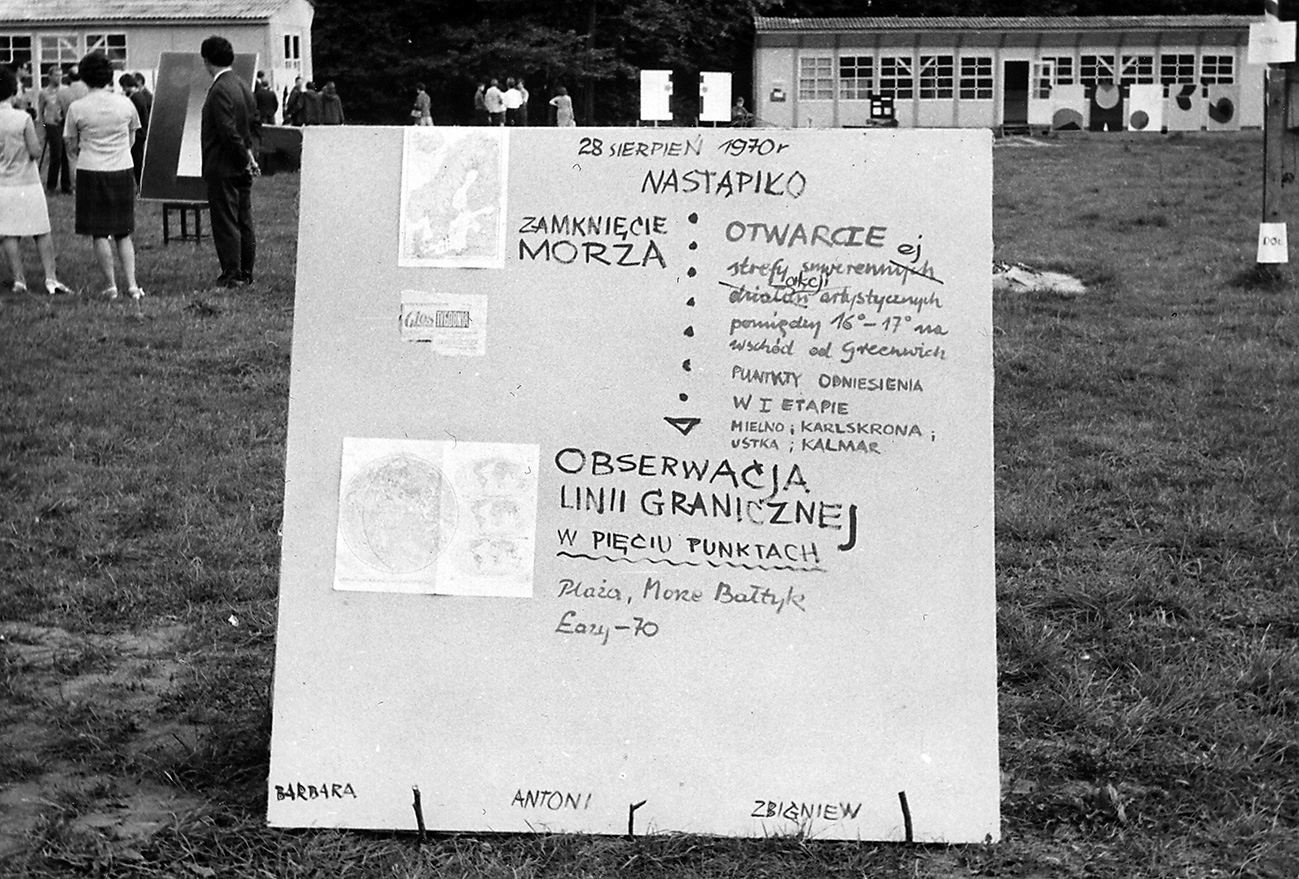 28 SIERPIEŃ 1970r
NASTĄPIŁO
ZAMKNIĘCIE
MORZA
OTWARCIE
strefy suwerennych ej
działań akcji artystycznych
pomiędzy 16° – 17° na
wschód od Greenwich
PUNTKTY ODNIESIENIA
W I ETAPIE
MIELNO ; KARLSKRONA ;
USTKA ; KALMAR
Głos TYGODNIA
OBSERWACJA
LINII GRANICZNEJ
W PIĘCIU PUNKTACH
Plaża, Morze Bałtyk
Łazy – 70
BARBARA
ANTONI
ZBIGNIEW
GÓRA
DÓŁ